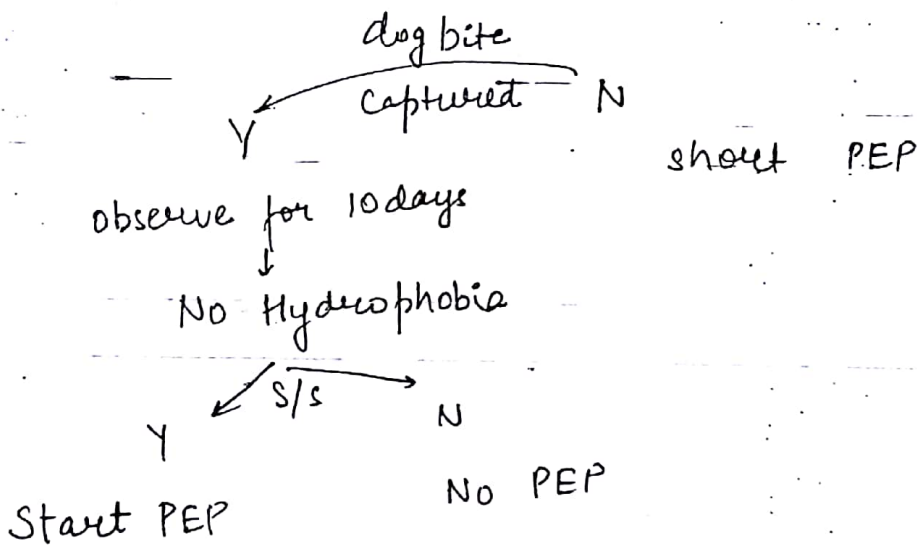 dog bite
captured
Y
N
short PEP
observe for 10 days
No Hydrophobia
S/S
Y
N
Start PEP
No PEP